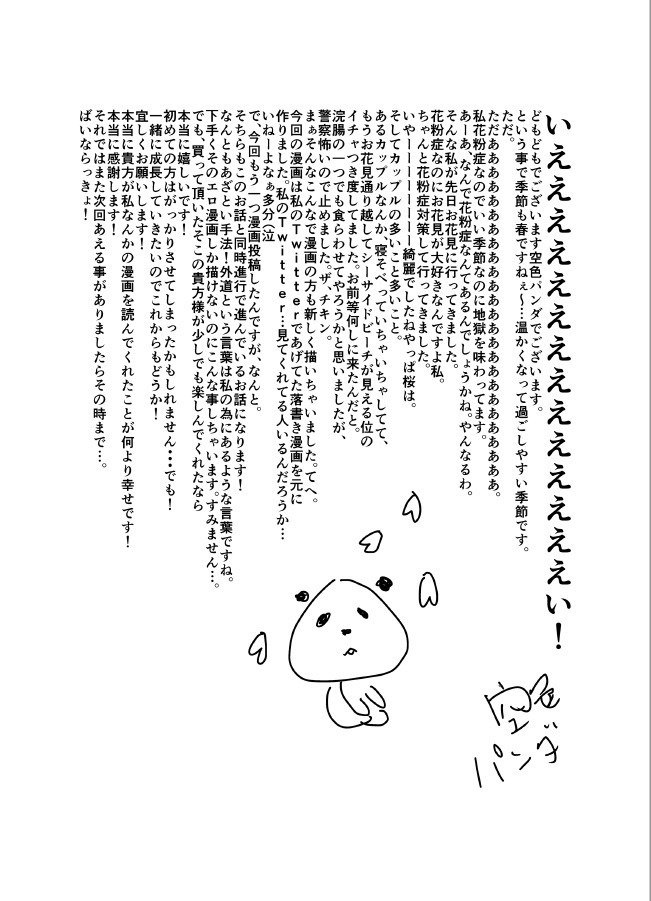 いえええええええええええええええい！
どもどもでございます空色パンダでございます。
という事で季節も春ですねぇ～…温かくなって過ごしやすい季節です。
ただ。
ただあああああああああああああああああああああああああ。
私花粉症なのでいい季節なのに地獄を味わってます。
あーあ、なんで花粉症なんてあるんでしょうかね。やんなるわ。
そんな私が先日お花見に行ってきました。
花粉症なのにお花見が大好きなんですよ私。
ちゃんと花粉症対策して行ってきました。
いやーーーーーーーー綺麗でしたねやっぱ桜は。
そしてカップルの多いこと多いこと。
あるカップルなんか、寝そべっていちゃいちゃしてて、
もうお花見通り越してシーサイドビーチが見える位の
イチャつき度してました。お前等何しに来たんだと。
浣腸の一つでも食らわせてやろうかと思いましたが、
警察怖いので止めました。ザ、チキン。
まぁそんなこんなで漫画の方も新しく描いちゃいました。てへ。
今回の漫画は私のTwitterであげてた落書き漫画を元に
作りました。私のTwitter…見てくれてる人いるんだろうか…
いねーよなぁ多分（泣
で、今回もう一つ漫画投稿したんですが、なんと。
そちらもこのお話と同時進行で進んでいるお話になります！
なんともあざとい手法！外道という言葉は私の為にあるような言葉ですね。
下手くそのエロ漫画しか描けないのにこんな事しちゃいます。すみません…。
でも、買って頂いたそこの貴方様が少しでも楽しんでくれたなら
本当に嬉しいです！
初めての方はがっかりさせてしまったかもしれません…でも！
一緒に成長していきたいのでこれからもどうか！
宜しくお願いします！
本当に貴方が私なんかの漫画を読んでくれたことが何より幸せです！
本当に感謝します！
それではまた次回あえる事がありましたらその時まで…。
ばいならっきょ！
空色
パンダ